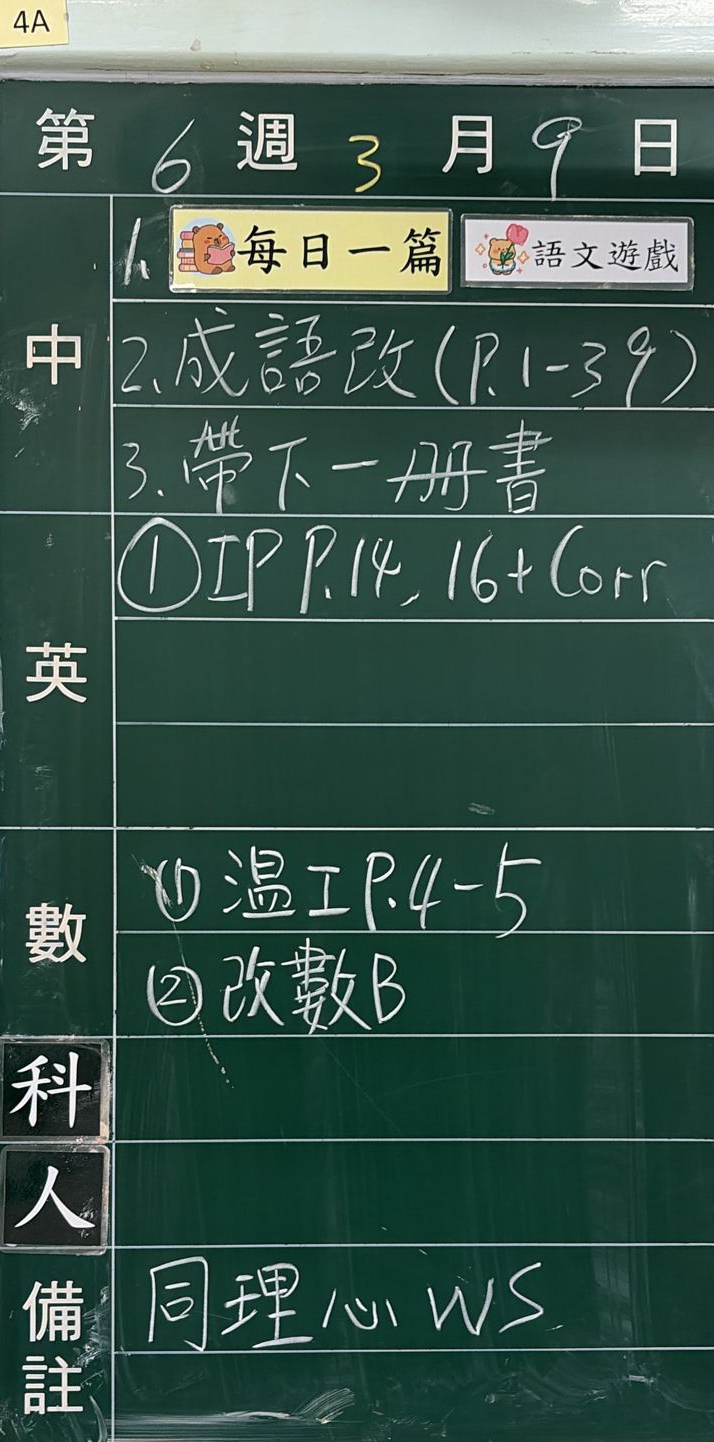 4A
第 6 週 3 月 9 日
1. 每日一篇 語文遊戲
中
2. 成語改(P.1-39)
3. 帶下一冊書
英
① IP P.14, 16+Corr
數
① 温工P.4-5
② 改數B
科
人
備註
同理心 WS